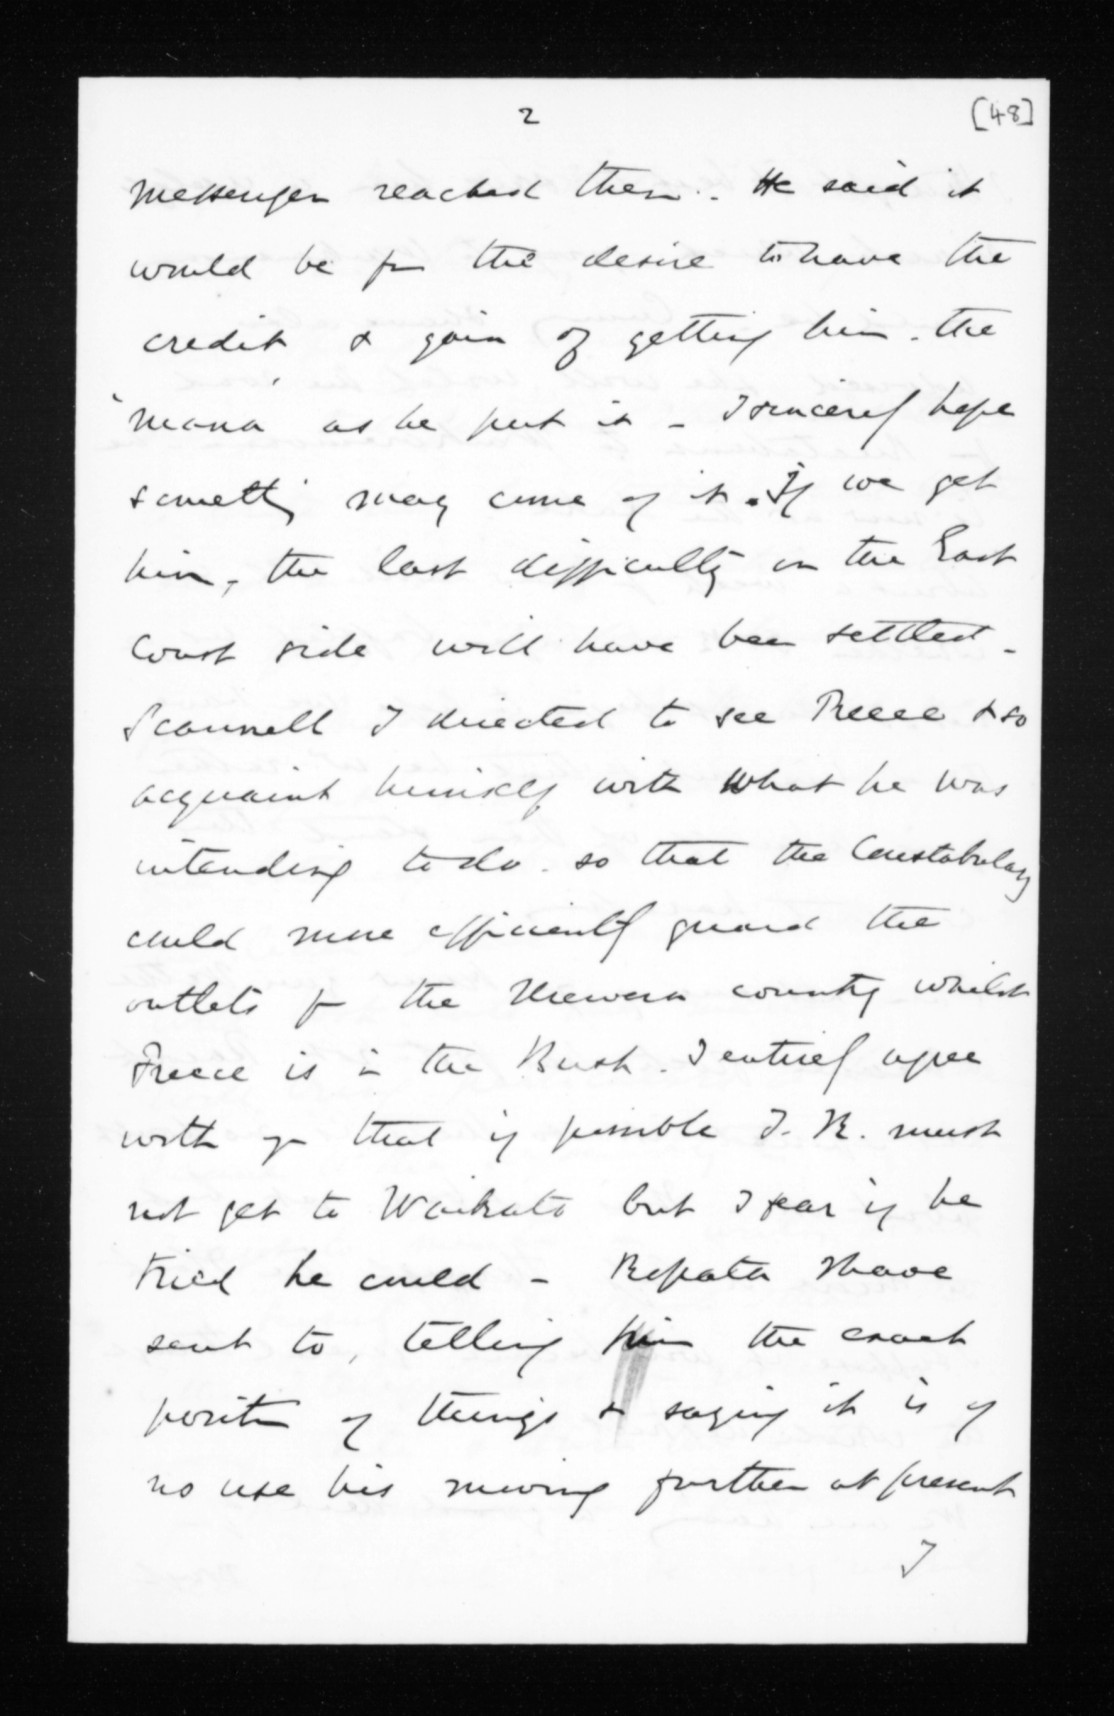 2
[48]
messenger reached them. He said it
would be for the desire to have the
credit & gain of getting him. the
'mana' as he put it - I sincerely hope
something may come of it. If we get
him, the last difficulty on the East
Coast side will have been settled -
Scannell I directed to see Preece & so
acquaint himself with what he was
intending to do. so that the Constabulary
could more efficiently guard the
outlets for the Urewera country whilst
Preece is in the Bush. I entirely agree
with you that if possible T. K. must
not get to Waikato but I fear if he
tried he could - Ropata I have
sent to, telling him the exact
position of things & saying it is of
no use his moving further at present
I